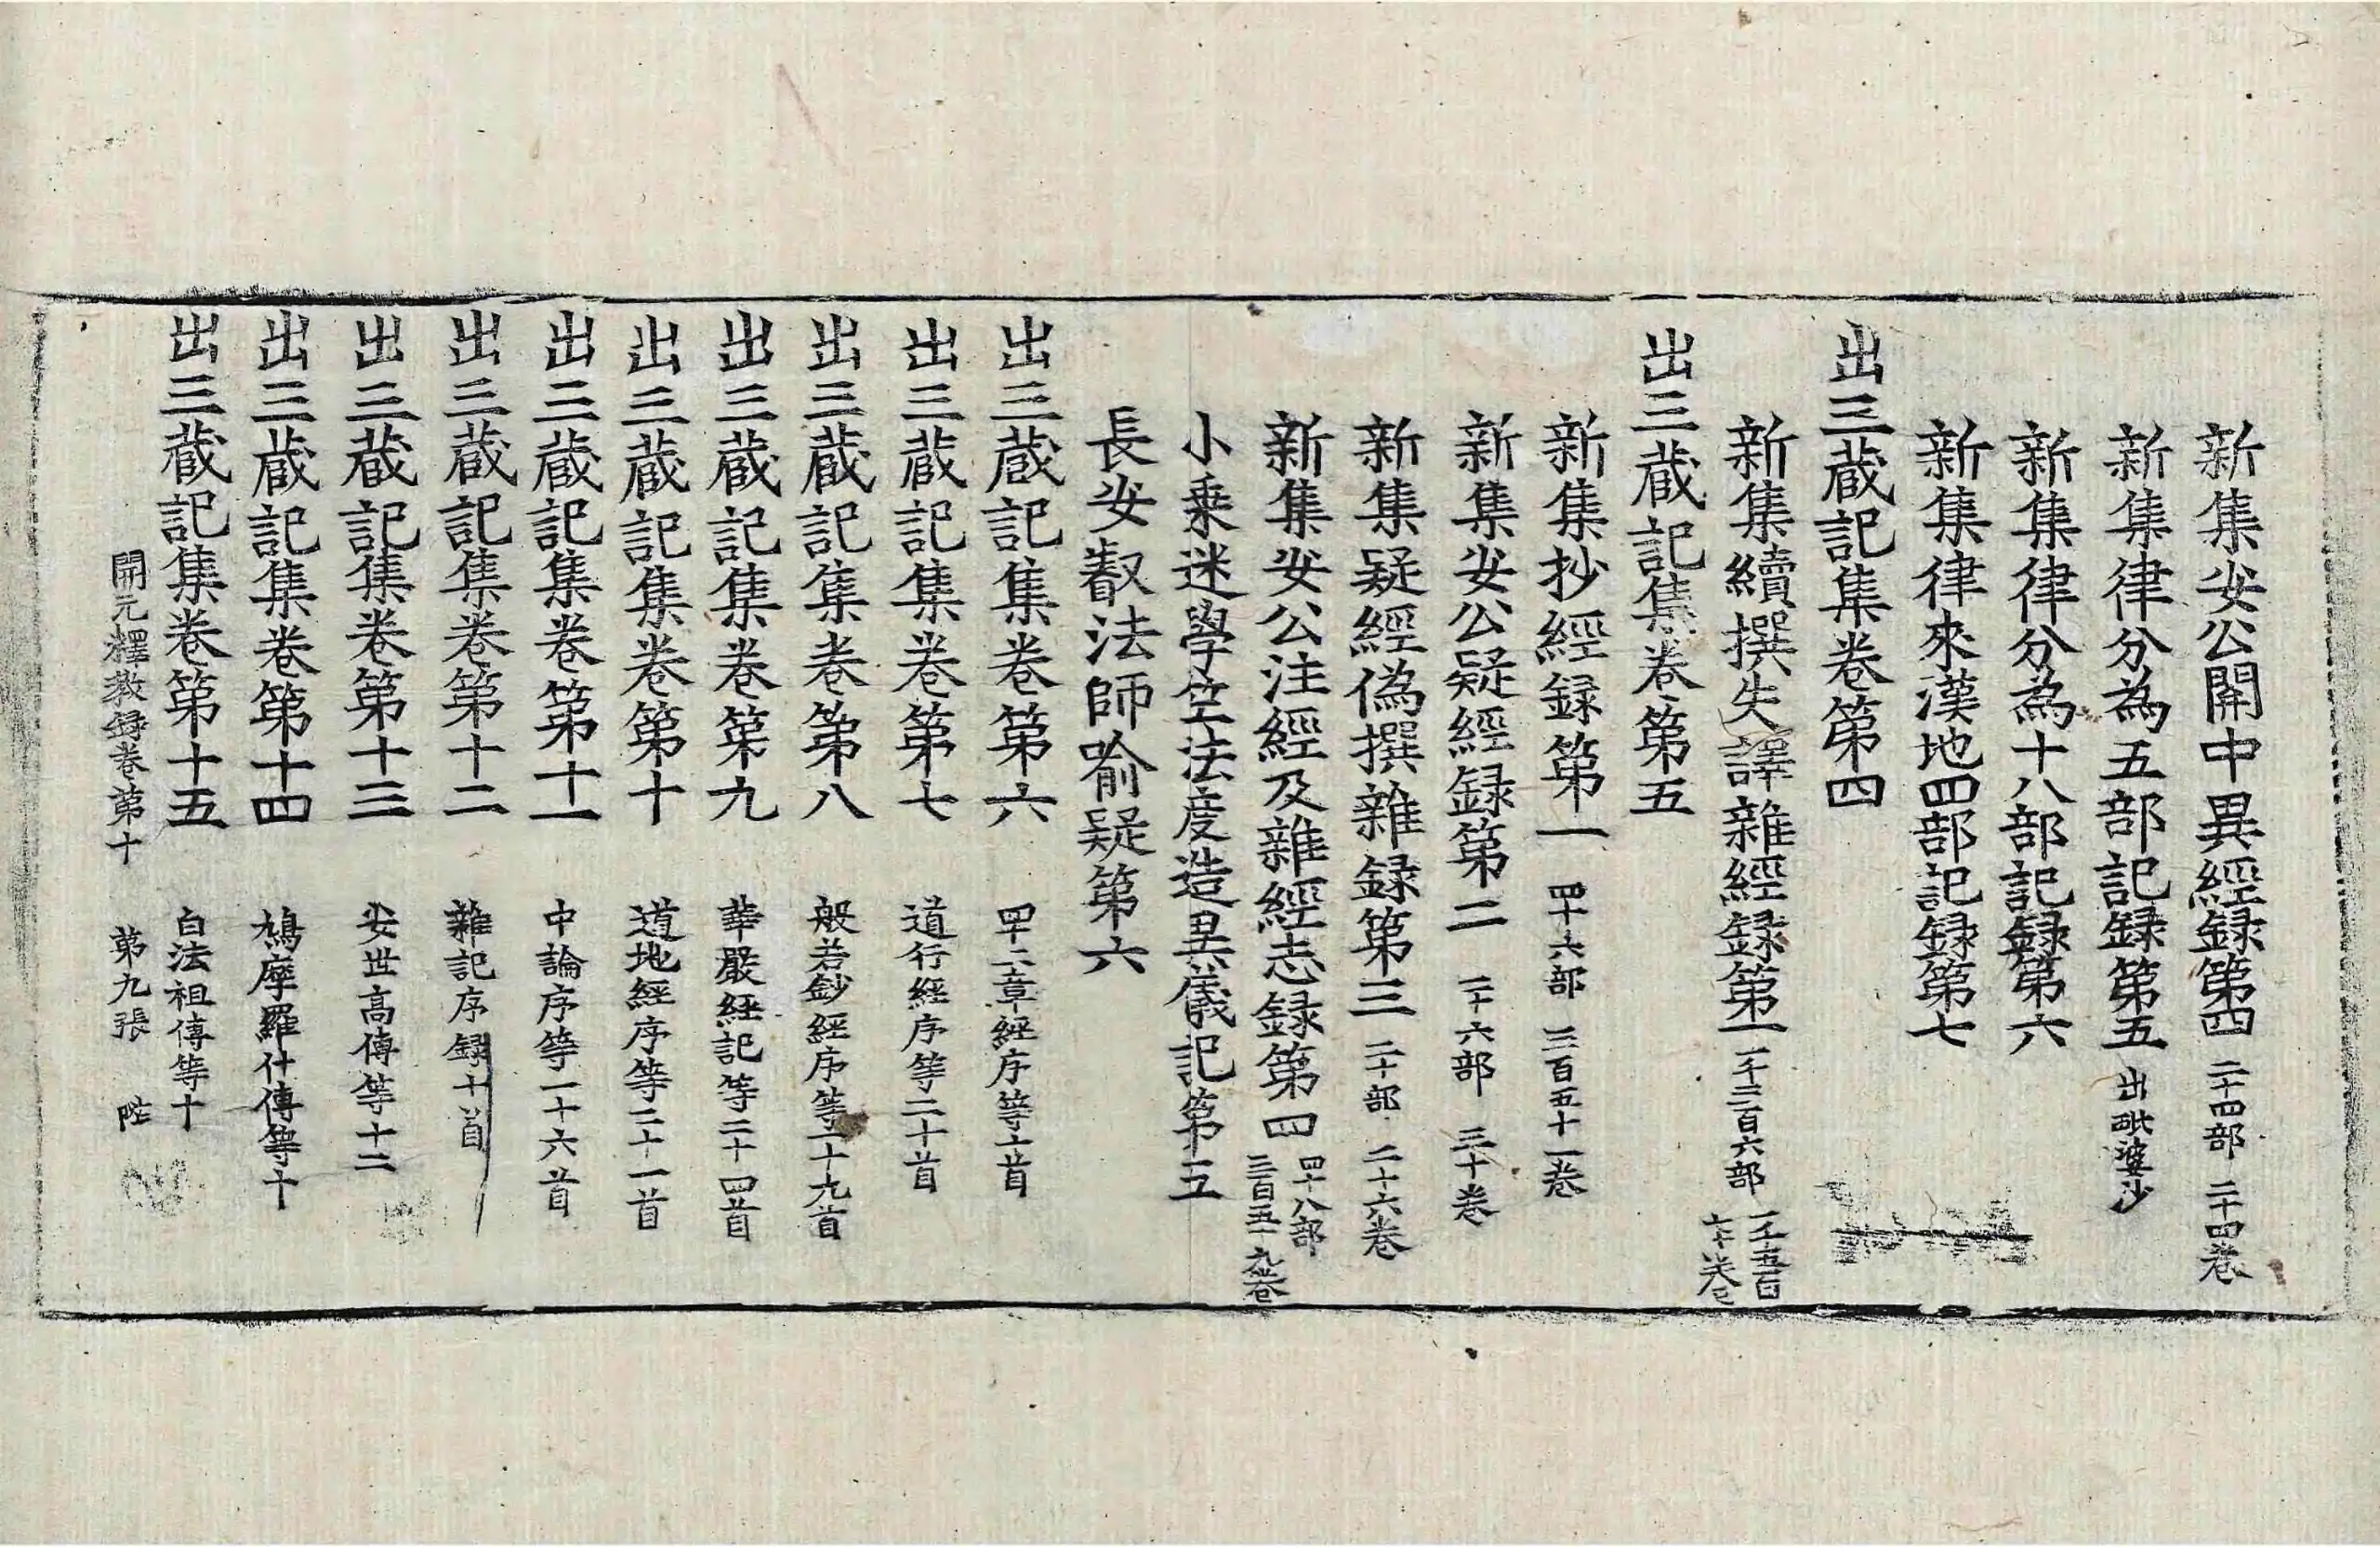 新集安公關中異經録第四 二十四部 二十四卷
新集律分為五部記録第五 出毗婆沙
新集律分為十八部記録第六
新集律來漢地四部記録第七
出三蔵記集卷第四
新集續撰失譯雜經録第一 一千三百六部 一千五百七十卷
出三蔵記集卷第五
新集抄經録第一 四十六部 三百五十一卷
新集安公疑經録第二 二十六部 三十卷
新集疑經偽撰雜録第三 二十部 二十六卷
新集安公注經及雜經志録第四 四十八部 三百五十九卷
小乗迷學空法度造異儀記第五
長安叡法師喻疑第六
出三蔵記集卷第六 四十二章經序等十首
出三蔵記集卷第七 道行經序等二十首
出三蔵記集卷第八 般若鈔經序等一十九首
出三蔵記集卷第九 華嚴經記等二十四首
出三蔵記集卷第十 道地經序等二十一首
出三蔵記集卷第十一 中論序等一十六首
出三蔵記集卷第十二 雜記序録十首
出三蔵記集卷第十三 安世高傳等十二
出三蔵記集卷第十四 鳩摩羅什傳等十
出三蔵記集卷第十五 白法祖傳等十
開元釋教録卷第十 第九張 陛